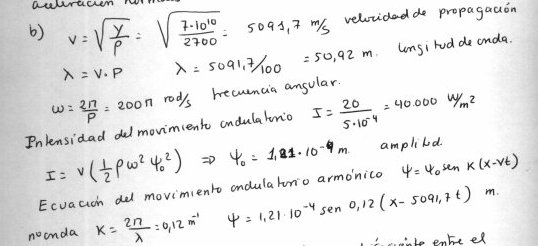 b) v = √(Y/ρ) = √(7·10¹⁰/2700) = 5091,7 m/s velocidad de propagación
λ = v·P λ = 5091,7/100 = 50,92 m. longitud de onda.
ω = 2π/P = 200π rad/s frecuencia angular.
Intensidad del movimiento ondulatorio I = 20/5·10⁻⁴ = 40.000 W/m²
I = v(½ρω²ψ₀²) ⇒ ψ₀ = 1,21·10⁻⁴ m. amplitud.
Ecuación del movimiento ondulatorio armónico ψ = ψ₀ sen K(x-vt)
nº onda K = 2π/λ = 0,12 m⁻¹ ψ = 1,21·10⁻⁴ sen 0,12 (x - 5091,7 t) m.
entre el